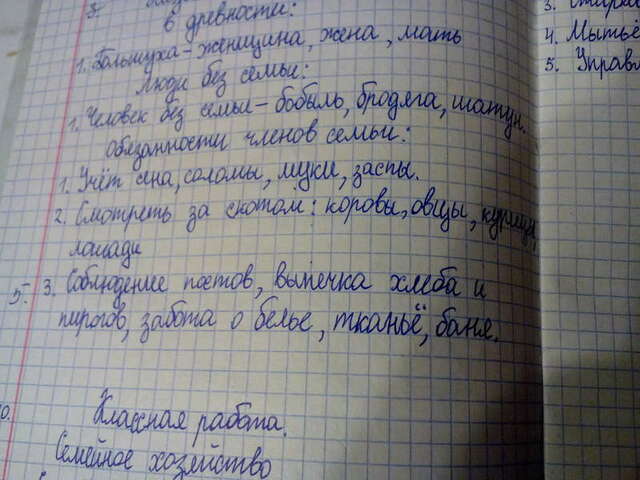 в древности:
1. Большуха - женщина, жена, мать
Люди без семьи:
1. Человек без семьи - бобыль, бродяга, шатун.
Обязанности членов семьи:
1. Учёт сена, соломы, муки, заспы.
2. Смотреть за скотом: коровы, овцы, курицы,
лошади
5. 3. Соблюдение постов, выпечка хлеба и
пирогов, забота о белье, тканьё, баня.
Классная работа.
Семейное хозяйство
3. Стирка
4. Мытьё
5.